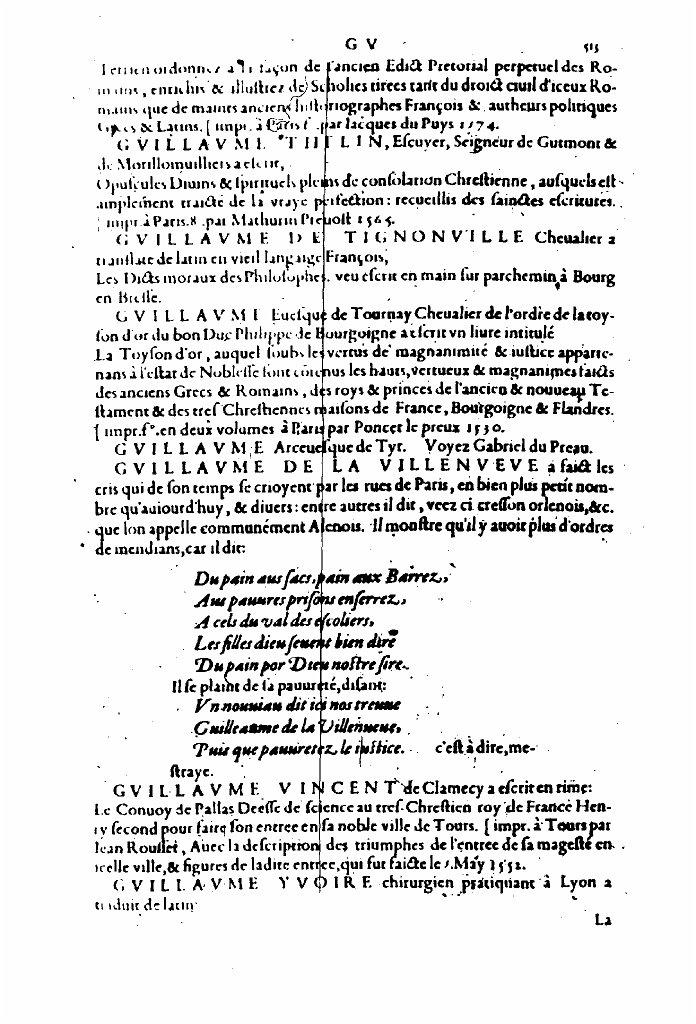 G V 513
ordonnez a la façon de l'ancien Edict Pretorial perpetuel des Ro-
mains, enrichis & illustrez de Scholies tirees tant du droict ciuil d'iceux Ro-
mains que de maints anciens historiographes François & autheurs politiques
Grecs & Latins. [impr. à Paris f°. par Iacques du Puys 1574.
GVILLAVME THILIN, Escuyer, Seigneur de Gutmont &
de Morillomuilliers a escrit,
Opuscules Diuins & spirituels pleins de consolation Chrestienne, ausquels est
amplement traicté de la vraye perfection: recueillis des sainctes escritures.
[impr. à Paris 8. par Mathurin Preuost 1565.
GVILLAVME DE TIGNONVILLE Cheualier a
translaté de latin en vieil langaige François,
Les Dicts moraux des Philosophes, veu escrit en main sur parchemin à Bourg
en Bresse.
GVILLAVME Euesque de Tournay Cheualier de l'ordre de la toy-
son d'or du bon Duc Philippe de Bourgoigne a escrit vn liure intitulé
La Toyson d'or, auquel soubs les vertus de magnanimité & iustice apparte-
nans à l'estat de Noblesse sont contenus les hauts, vertueux & magnanimes faicts
des anciens Grecs & Romains, des roys & princes de l'ancien & nouueau Te-
stament & des tres Chrestiennes maisons de France, Bourgoigne & Flandres.
[impr. f°. en deux volumes à Paris par Poncet le preux 1530.
GVILLAVME Arceuesque de Tyr. Voyez Gabriel du Preau.
GVILLAVME DE LA VILLENVEVE a faict les
cris qui de son temps se crioyent par les rues de Paris, en bien plus petit nom-
bre qu'auiourd'huy, & diuers: entre autres il dit, veez ci cresson orlenois, &c.
que lon appelle communément Alenois. Il monstre qu'il y auoit plus d'ordres
de mendians, car il dit:
Du pain aus sacs, pain aux Barrez,
Aus pauures prisons enserrez,
A cels du val des escoliers,
Les filles dieu seuent bien dire
Du pain por Dieu nostre sire.
Il se plaint de sa pauureté, disant:
Vn nouuiau dit ici nos treuue
Guilleaume de la Villenueue,
Puis que pauuretez le iustice. c'est à dire, me-
straye.
GVILLAVME VINCENT de Clamecy a escrit en rime:
Le Conuoy de Pallas Deesse de science au tres Chrestien roy de France Hen-
ry second pour faire son entree en sa noble ville de Tours. [impr. à Tours par
Iean Rousset, Auec la description des triumphes de l'entree de sa magesté en
icelle ville, & figures de ladite entree, qui fut faicte le 5. May 1552.
GVILLAVME YVOIRE chirurgien pratiquant à Lyon a
traduit de latin
La